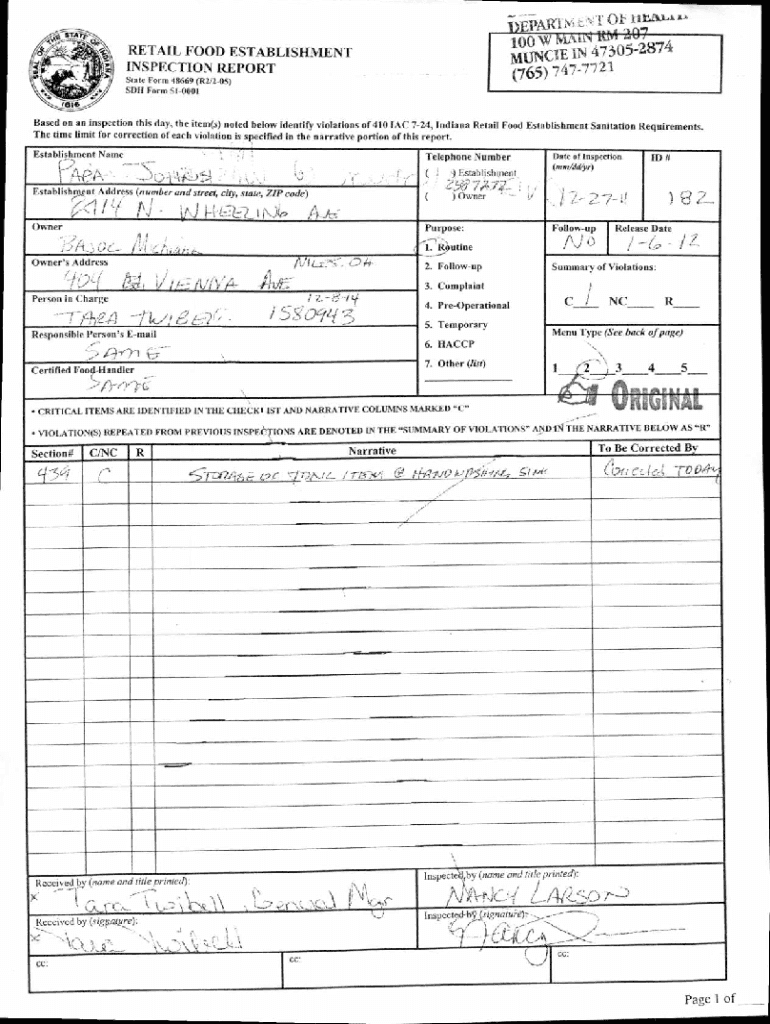 DEPARTMENT OF HEALTH
100 W MAIN RM 207
MUNCIE IN 47305-2874
(765) 747-7721
SEAL OF THE STATE OF INDIANA
1816
RETAIL FOOD ESTABLISHMENT
INSPECTION REPORT
State Form 48669 (R2/2-05)
SDH Form 51-0001
Based on an inspection this day, the item(s) noted below identify violations of 410 IAC 7-24, Indiana Retail Food Establishment Sanitation Requirements.
The time limit for correction of each violation is specified in the narrative portion of this report.
Establishment Name
PAPA JOHNS
Telephone Number
( ) Establishment
( ) Owner
Date of Inspection
(mm/dd/yr)
12-27-11
ID #
182
Establishment Address (number and street, city, state, ZIP code)
2414 N. WHEELING AVE
Owner
Purpose:
1. Routine
2. Follow-up
3. Complaint
4. Pre-Operational
5. Temporary
6. HACCP
7. Other (list)
Follow-up
NO
Release Date
1-6-12
Owner's Address
404 VIENIYA AVE
Summary of Violations:
C 1 NC R
Person in Charge
12-8-14
TARA TWIBELL
1580943
Responsible Person's E-mail
SAME
Menu Type (See back of page)
1 2 3 4 5
Certified Food-Handler
SAME
ORIGINAL
• CRITICAL ITEMS ARE IDENTIFIED IN THE CHECKLIST AND NARRATIVE COLUMNS MARKED "C"
• VIOLATION(S) REPEATED FROM PREVIOUS INSPECTIONS ARE DENOTED IN THE "SUMMARY OF VIOLATIONS" AND IN THE NARRATIVE BELOW AS "R"
Section# C/NC R Narrative To Be Corrected By
439 C STORAGE OF ITEM @ HANDWASHING SINK Corrected TODAY
Received by (name and title printed):
Tara Twibell, General Mgr
Inspected by (name and title printed):
NANCY LARSON
Received by (signature):
Tara Twibell
Inspected by (signature):
Nancy
cc:
cc:
cc:
Page 1 of